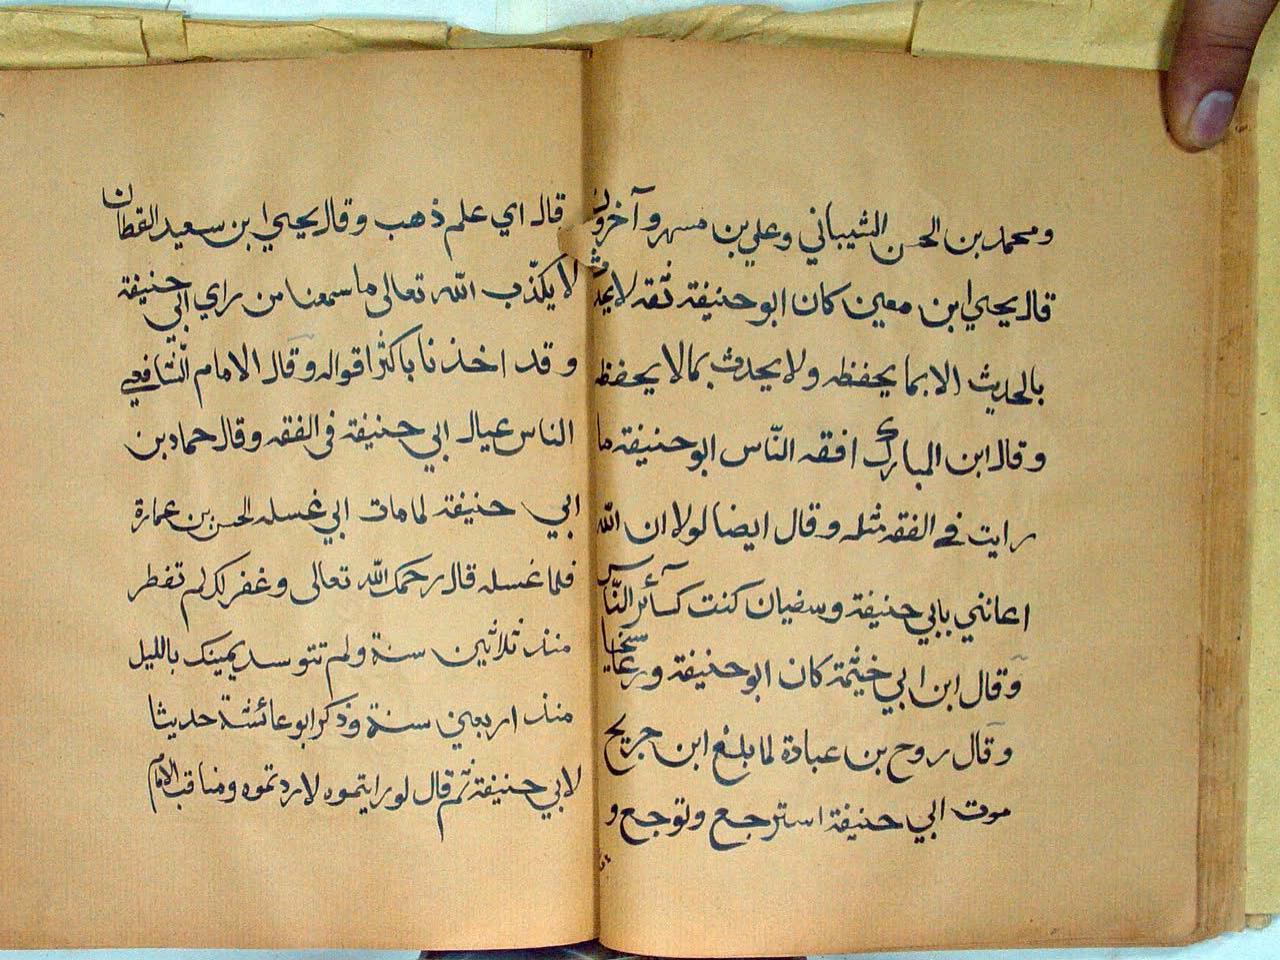 ومحمد بن الحسن الشيباني وعلي بن مسهر وآخرون
قال يحيي ابن معين كان ابو حنيفة ثقه لا يحدث
بالحديث الا بما يحفظه ولا يحدث بما لا يحفظه
وقال ابن المبارك افقه النّاس ابو حنيفة ما
رايت في الفقه مثله وقال ايضا لولا ان اللّه
اعانني بابي حنيفة وسفيان كنت كسآئر النّاس
وقال ابن ابي خيثمة كان ابو حنيفة ورعا سخيا
وقال روح بن عبادة لما بلغ ابن جريج
موت ابي حنيفة استرجع وتوجع و
قال اي علم ذهب وقال يحيي ابن سعيد القطان
لا يكذّب اللّه تعالى ما سمعنا من راي ابي حنيفة
وقد اخذنا باكثر اقواله وقال الامام الشّافعي
الناس عيال ابي حنيفة في الفقه وقال حماد بن
ابي حنيفة لما مات ابي غسله الحسن بن عمارة
فلما غسله قال رحمك اللّه تعالى وغفر لك لم تفطر
منذ ثلاثين سنة ولم تتوسد يمينك بالليل
منذ اربعين سنة وذكر ابو عائشة حديثا
لابي حنيفة ثم قال لو رايتموه لاردتموه ومناقب الامام